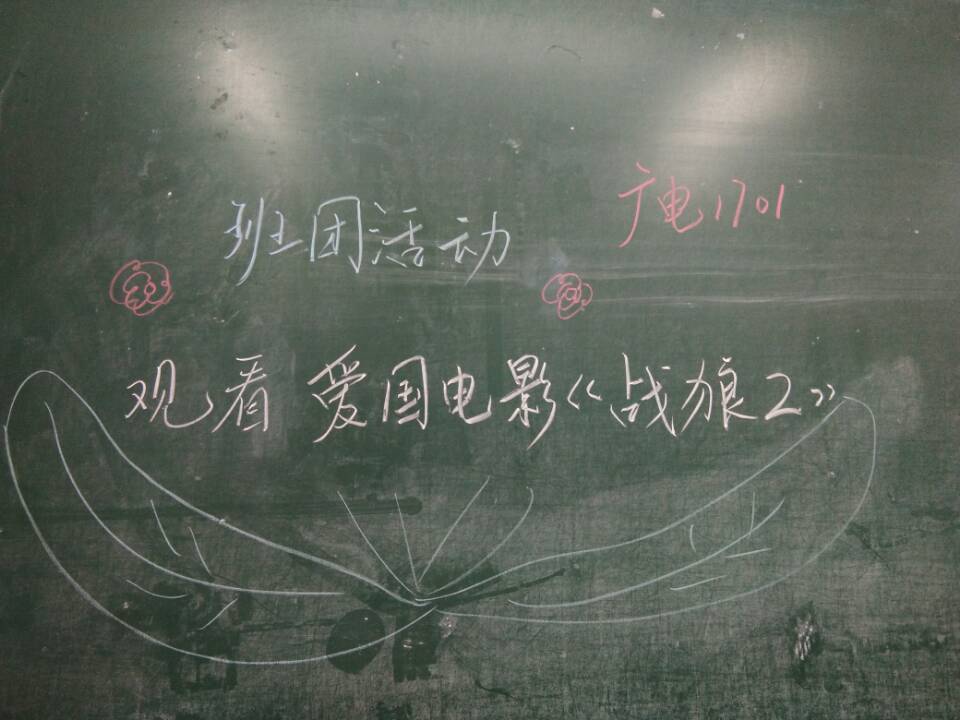 班团活动
广电1701
观看 爱国电影《战狼2》